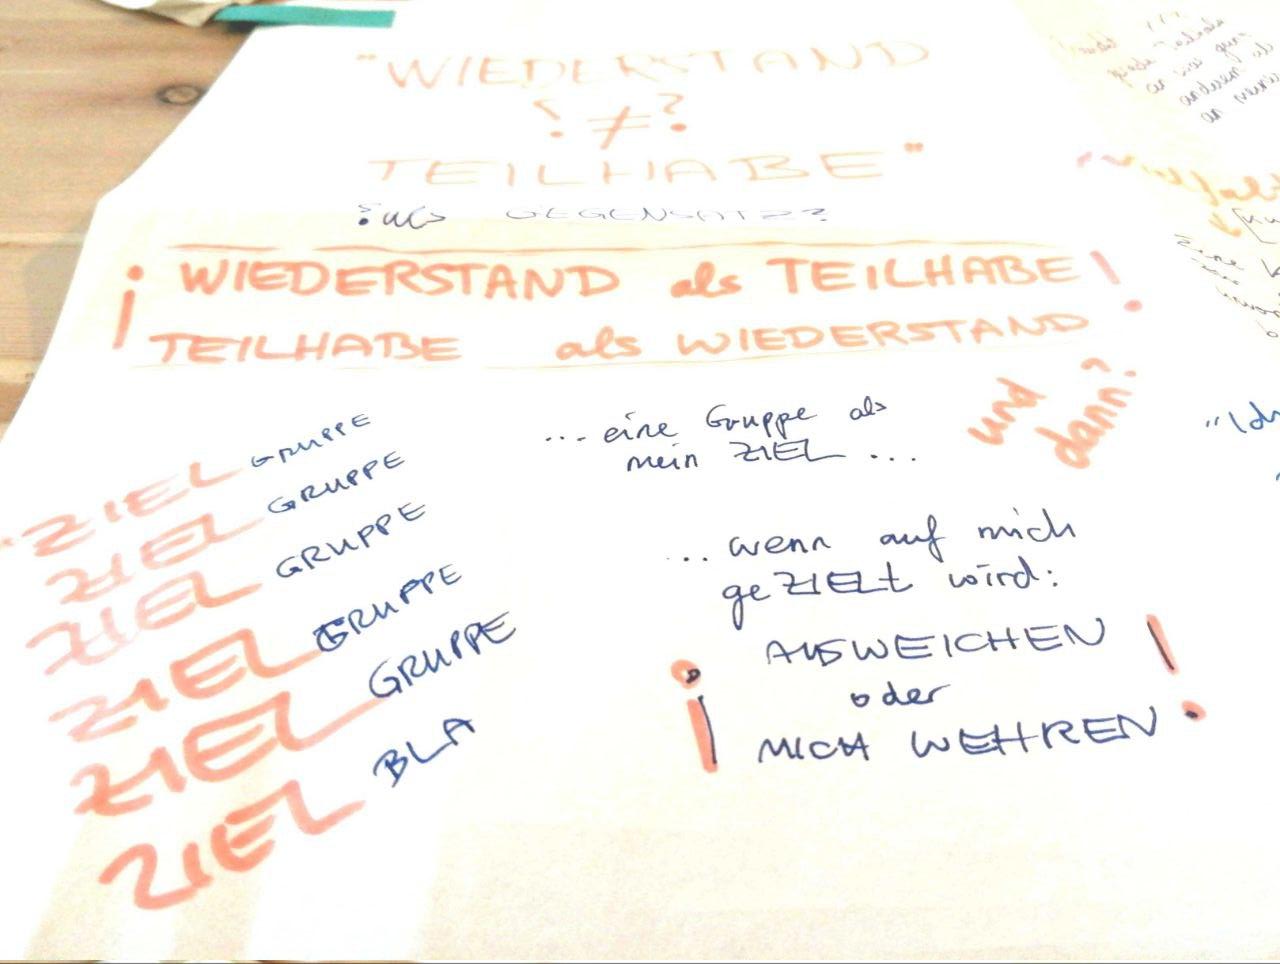 "WIEDERSTAND
¿ ≠ ?
TEILHABE"
¿als GEGENSATZ?
¡ WIEDERSTAND als TEILHABE!
TEILHABE als WIEDERSTAND
und
dann?
"ZIEL GRUPPE
ZIEL GRUPPE
ZIEL GRUPPE
ZIEL GRUPPE
ZIEL GRUPPE
ZIEL BLA
... eine Gruppe als
mein ZIEL ...
... wenn auf mich
geZIELt wird:
¡ AUSWEICHEN !
oder
MICH WEHREN
anderem als
"Ich